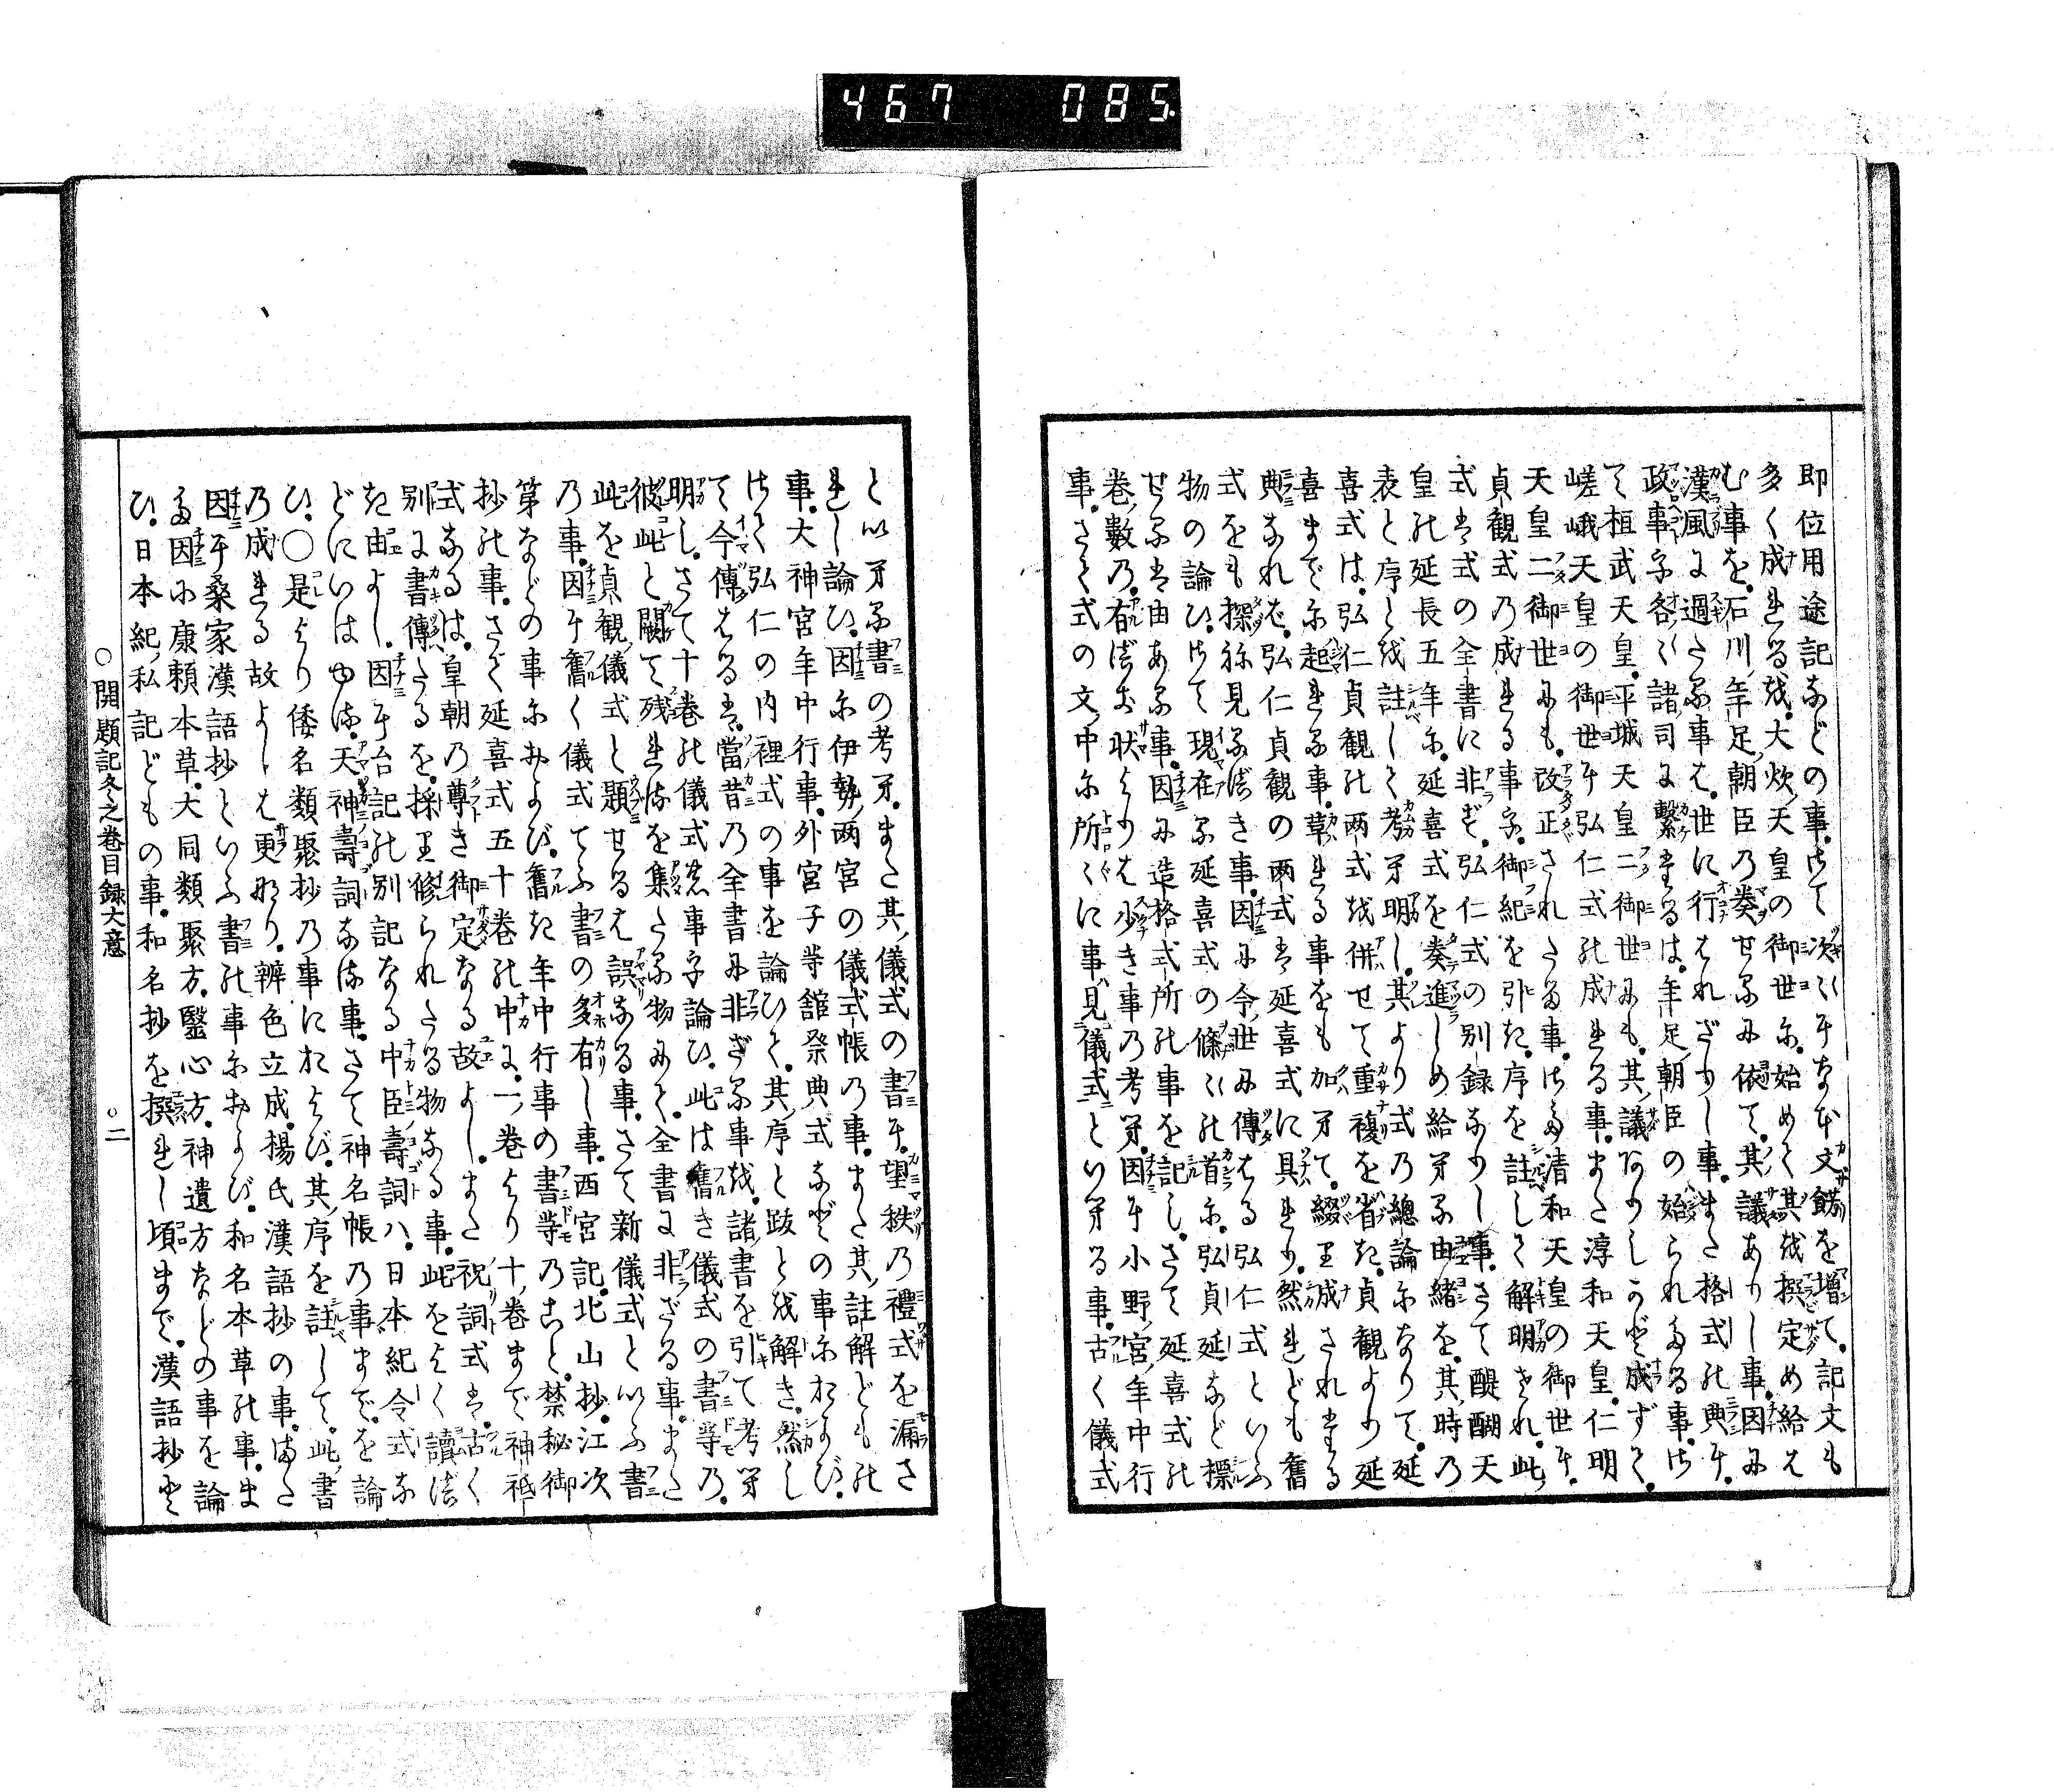 467 085
即位用途記などの事。さて次々になほ文飾を増て。記文も
多く成れるを。大炊天皇の御世に。始めて其を撰定め給は
む事を。石川年足朝臣の奏せるに依て。其議ありし事。因に
漢風に過たる事は。世に行はれざりし事。また格式の典に。
政事を各々諸司に繋たるは。年足朝臣の始られたる事。さ
て桓武天皇。平城天皇二御世にも。其議ありしかど成ずて。
嵯峨天皇の御世に弘仁式の成れる事。また淳和天皇。仁明
天皇二御世にも。改正されたる事。さた清和天皇の御世に。
貞観式の成れる事を。御紀を引き。序を註して解明され。此
式は式の全書に非ず。弘仁式の別録なりし事。さて醍醐天
皇の延長五年に。延喜式を奏進しめ給へる由緒を。其時の
表と序とを註して考へ明し。其より式の總論になりて。延
喜式は。弘仁貞観の両式を併せて重複を省き。貞観より延
喜までに起れる事。草れる事をも加へて。綴り成されたる
典なれば。弘仁貞観の両式は延喜式に具れり。然れども舊
式をも探ね見るべき事。因に今世に傳はる弘仁式といふ
物の論ひ。さて現在る延喜式の條々の首に。弘貞延など標
せるは由ある事。因に造格式所の事を記し。さて延喜式の
巻数の。有べき状よりは少き事の考へ。因に小野宮年中行
事。さて式の文中に所々に事見儀式といへる事。古く儀式
といへる書の考へ。また其儀式の書に。望秩の禮式を漏さ
れし論ひ。因に伊勢両宮の儀式帳の事。また其註解どもの
事。大神宮年中行事。外宮子等舘祭典式などの事におよび。
さて弘仁の内裡式の事を論ひて。其序と跋とを解き。然し
て今傳はるは。當昔の全書に非ざる事を。諸書を引て考へ
明し。さて十巻の儀式の事を論ひ。此は舊き儀式の書等の。
彼此と闕て残れるを集たる物にて。全書に非ざる事。また
此を貞観儀式と題せるは誤なる事。さて新儀式といふ書
の事。因に舊く儀式てふ書の多有し事。西宮記。北山抄。江次
第などの事におよび。舊き年中行事の書等のこと。禁秘御
抄の事。さて延喜式五十巻の中に。一巻より十巻まで神祇
式なるは。皇朝の尊き御定なる故よし。また祝詞式は。古く
別に書傳たるを。採り修られたる物なる事。此をよく讀べ
き由よし。因に台記の別記なる中臣壽詞ハ。日本紀令式な
どにいはゆる。天神壽詞なる事。さて神名帳の事までを論
ひ。〇是より倭名類聚抄の事におよび。其序を註して。此書
の成れる故よしは更なり。辨色立成。揚氏漢語抄の事。また
因に桑家漢語抄といふ書の事におよび。和名本草の事。ま
た因に康頼本草。大同類聚方。醫心方。神遺方などの事を論
ひ。日本紀私記どもの事。和名抄を撰れし頃まで。漢語抄と
〇開題記冬之巻目録大意 〇二